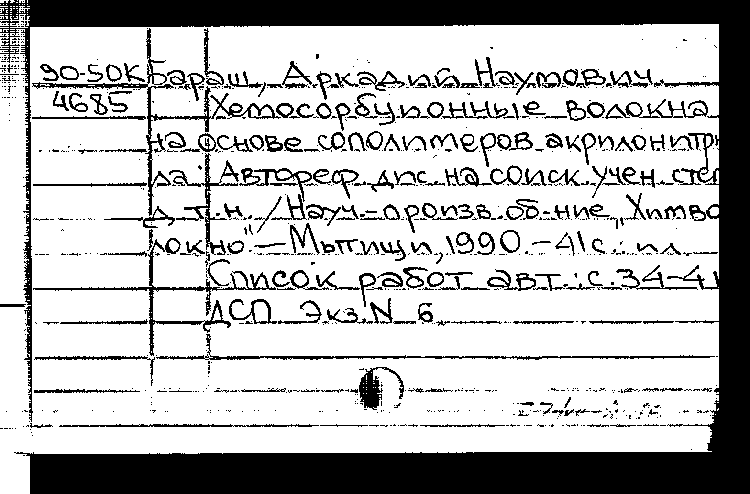 90-50К Бараш, Аркадий Наумович.
4685 Хемосорбционные волокна
на основе сополимеров акрилонитри
ла : Автореф. дис. на соиск. учен. степ.
д. т. н. / Науч.-произв. об-ние "Химво
локно". — Мытищи, 1990. — 41 с. : ил.
Список работ авт.: с. 34-41
ДСП Экз. N 6